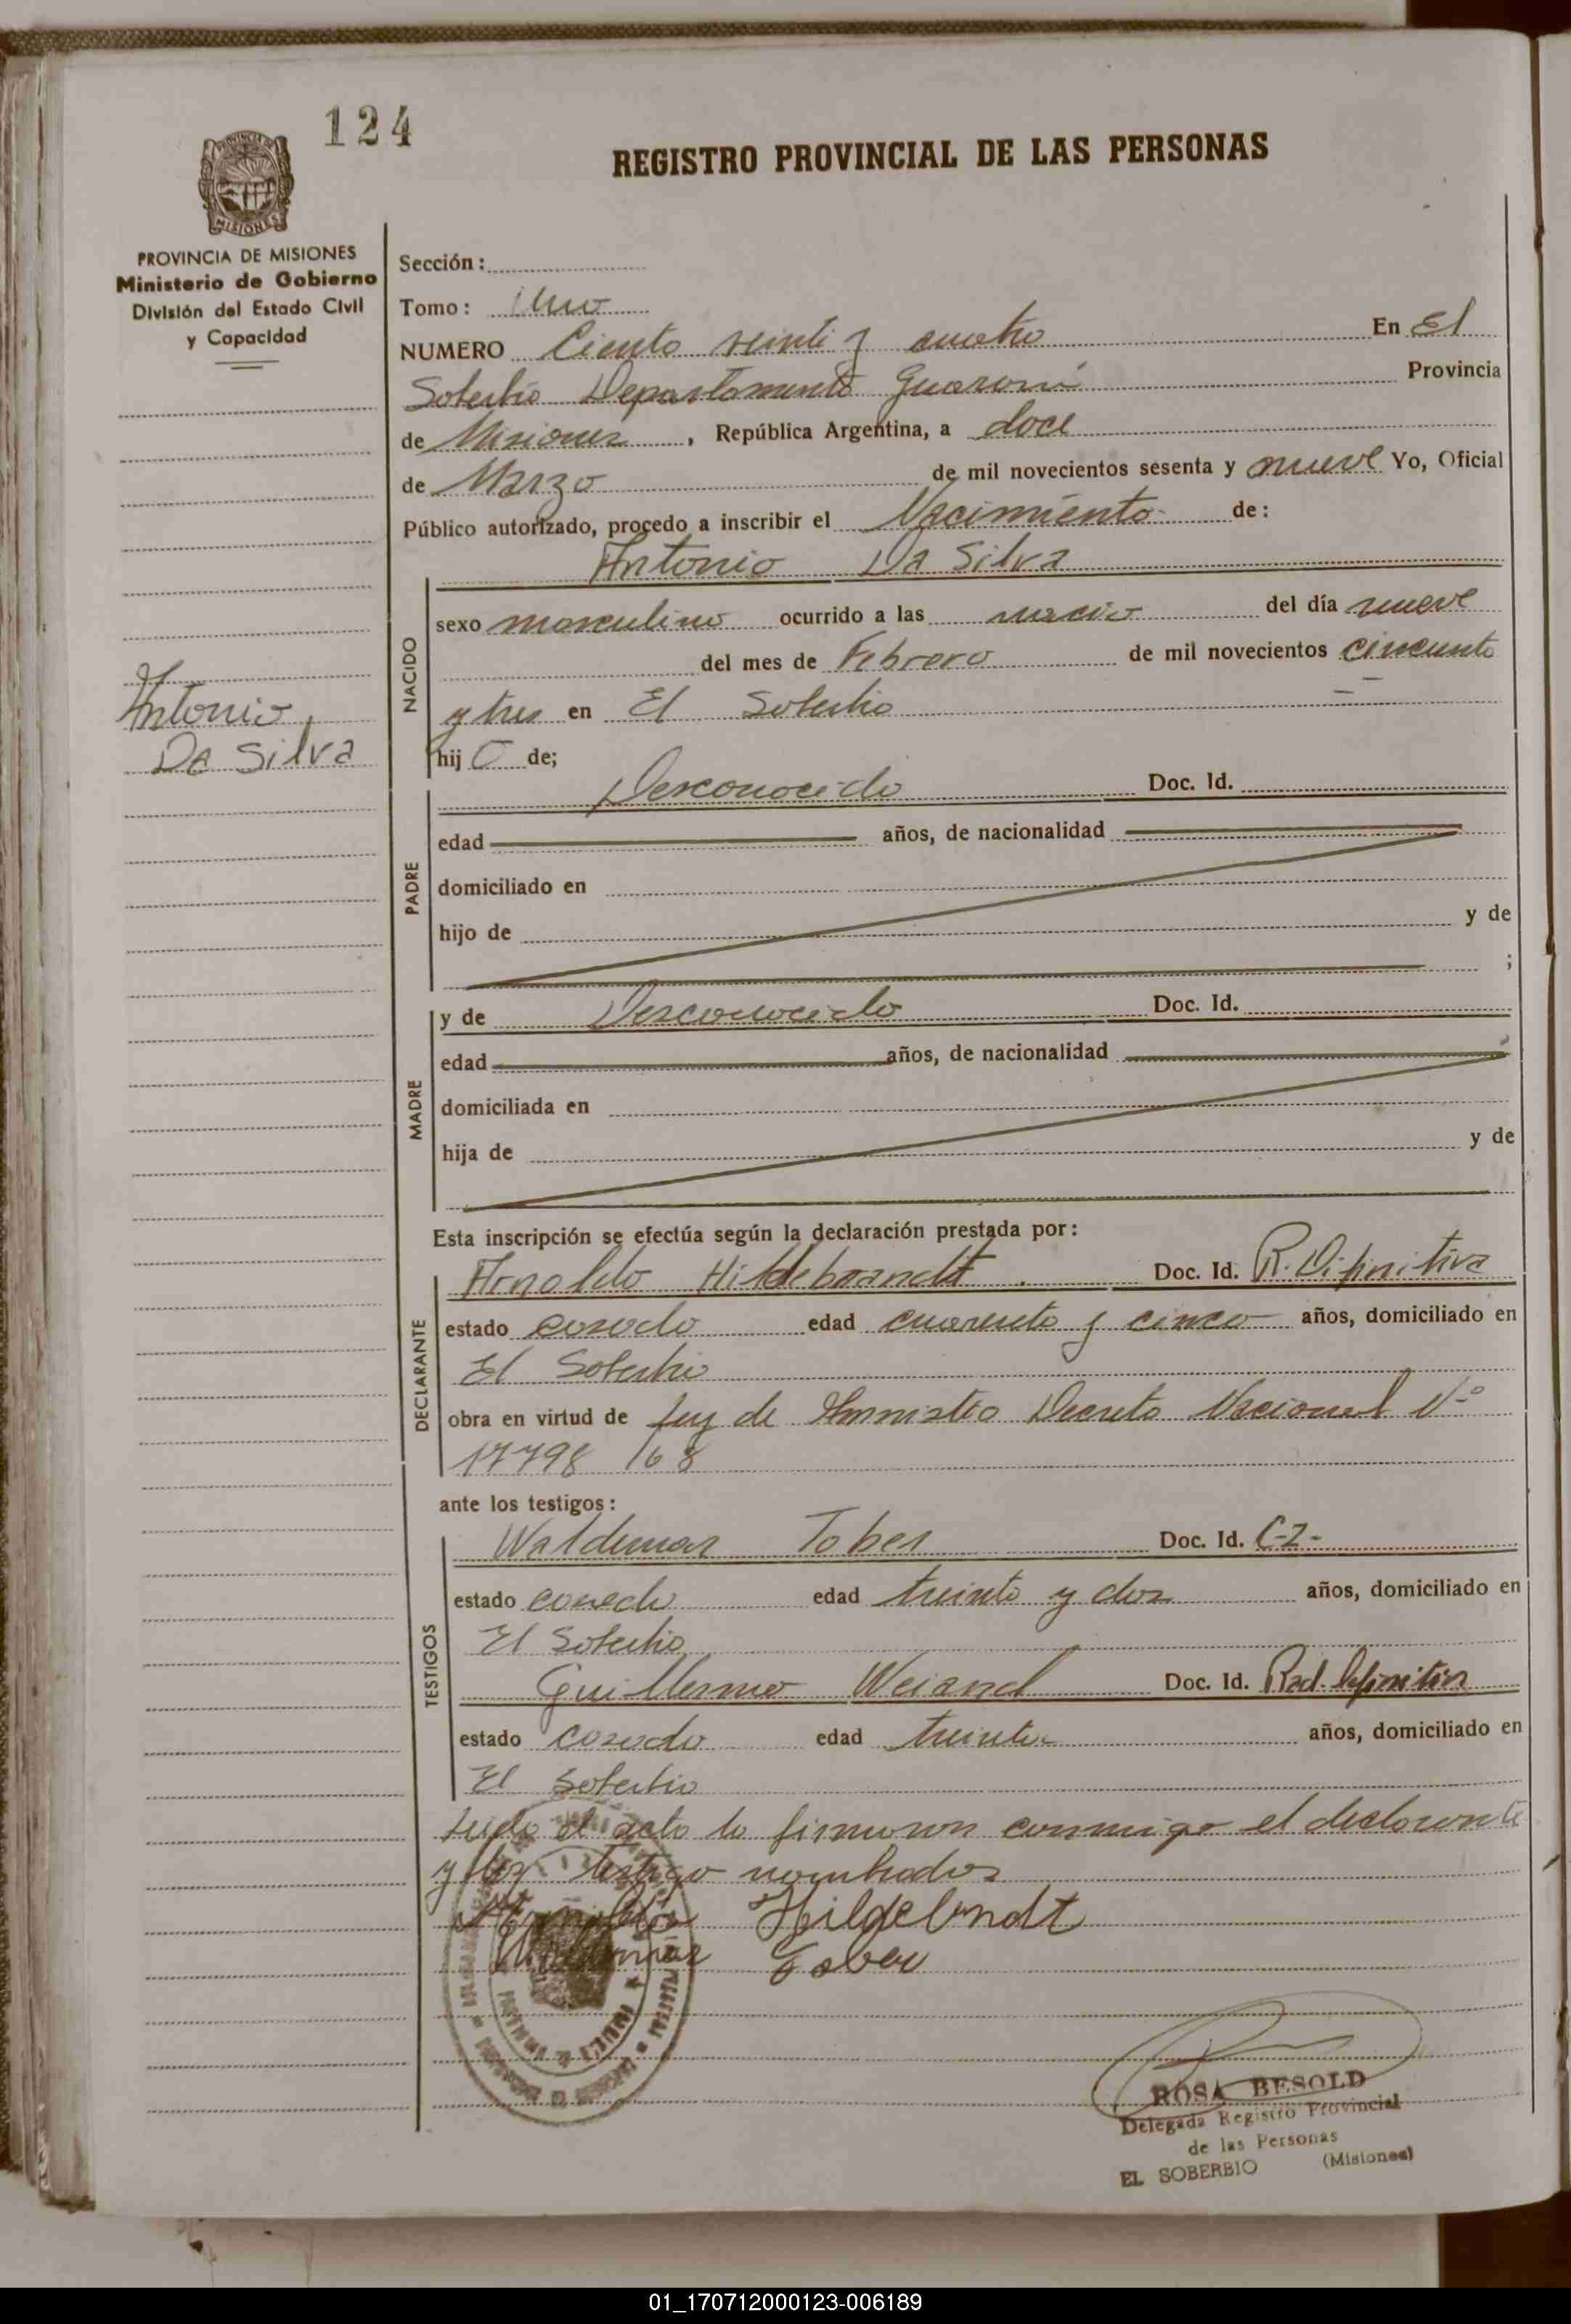 124
REGISTRO PROVINCIAL DE LAS PERSONAS
PROVINCIA DE MISIONES
Ministerio de Gobierno
División del Estado Civil
y Capacidad
Sección:
Tomo: Uno
NUMERO Ciento veinti y cuatro En El
Soberbio Departamento Guaraní Provincia
de Misiones, República Argentina, a doce
de Marzo de mil novecientos sesenta y nueve Yo, Oficial
Público autorizado, procedo a inscribir el Nacimiento de:
Antonio Da Silva
NACIDO
sexo masculino ocurrido a las nacio del día nueve
del mes de Febrero de mil novecientos cincuenta
y tres en El Soberbio
hijo de;
Antonio
Da Silva
PADRE
Desconocido Doc. Id.
edad años, de nacionalidad
domiciliado en
hijo de y de
;
MADRE
y de Desconocido Doc. Id.
edad años, de nacionalidad
domiciliada en
hija de y de
Esta inscripción se efectúa según la declaración prestada por:
DECLARANTE
Arnoldo Hildebrandt. Doc. Id. R. Difinitiva
estado casado edad cuarenta y cinco años, domiciliado en
El Soberbio
obra en virtud de Ley de Amnistia Decreto Nacional Nº
17798/68
ante los testigos:
TESTIGOS
Waldemar Tober Doc. Id. C-I-
estado casado edad treinta y dos años, domiciliado en
El Soberbio
Guillermo Weiand Doc. Id. Rad. Definitiva
estado casado edad treinta años, domiciliado en
El Soberbio
el acta la firmaron conmigo el declarante
y los testigo nombrados
Arnoldo Hildebndt
Waldemar Tober
ROSA BESOLD
Delegada Registro Provincial
de las Personas
EL SOBERBIO (Misiones)
01_170712000123-006189